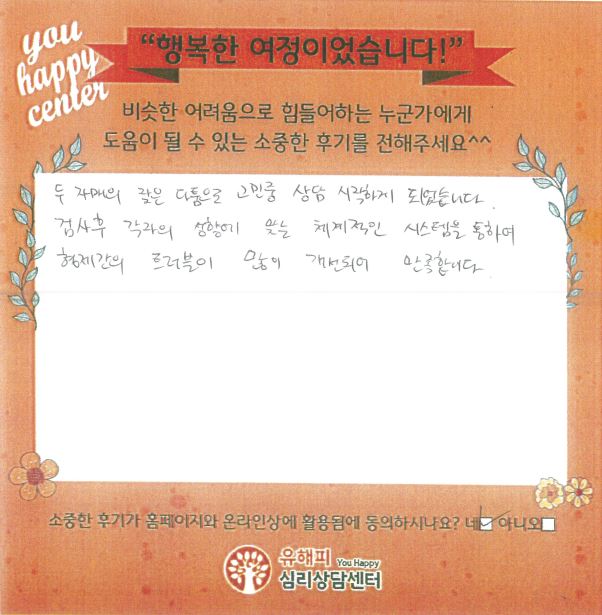 you
happy
center
“행복한 여정이었습니다!”
비슷한 어려움으로 힘들어하는 누군가에게
도움이 될 수 있는 소중한 후기를 전해주세요^^
두 자매의 잦은 다툼으로 고민중 상담 시작하게 되었습니다.
검사후 각자의 성향에 맞는 체계적인 시스템을 통하여
형제간의 트러블이 많이 개선되어 만족합니다.
소중한 후기가 홈페이지와 온라인상에 활용됨에 동의하시나요? 네☑ 아니오☐
유해피 You Happy
심리상담센터